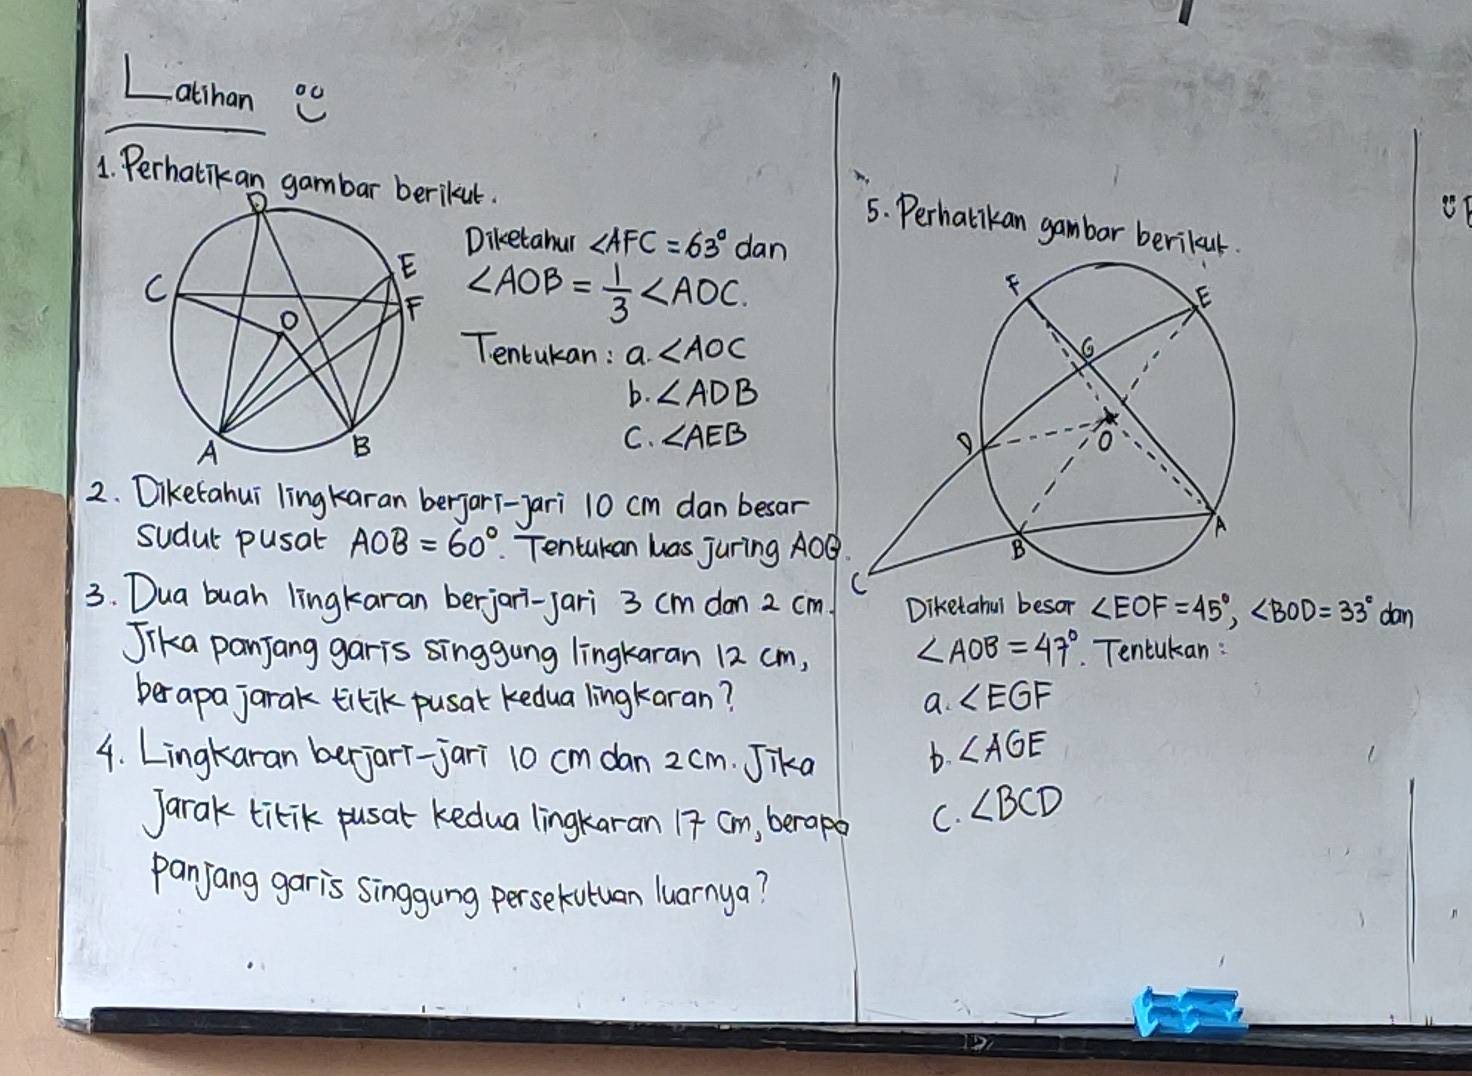 Latihan
1. Perhatikan gambar berikut.
D
C
E
F
O
A
B
Diketahui ∠AFC = 63° dan
∠AOB = 1/3 ∠AOC.
Tentukan : a. ∠AOC
b. ∠ADB
C. ∠AEB
2. Diketahui lingkaran berjari-jari 10 cm dan besar
sudut pusat AOB = 60°. Tentukan luas juring AOB.
3. Dua buah lingkaran berjari-jari 3 cm dan 2 cm.
Jika panjang garis singgung lingkaran 12 cm,
berapa jarak titik pusat kedua lingkaran?
4. Lingkaran berjari-jari 10 cm dan 2 cm. Jika
Jarak titik pusat kedua lingkaran 17 cm, berapa
panjang garis singgung persekutuan luarnya?
5. Perhatikan gambar berikut.
F
E
G
D
O
A
B
C
Diketahui besar ∠EOF = 45°, ∠BOD = 33° dan
∠AOB = 47°. Tentukan :
a. ∠EGF
b. ∠AGE
C. ∠BCD